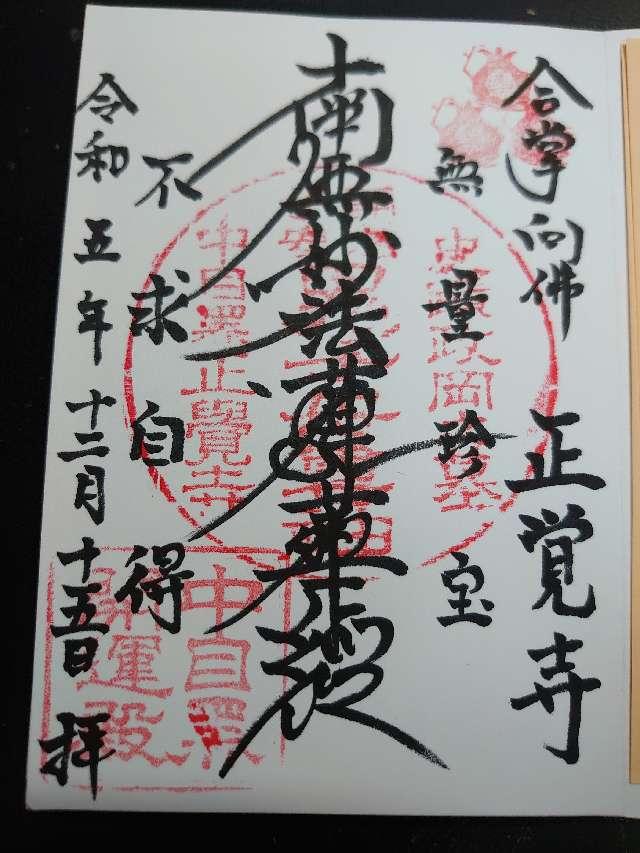 合掌向佛 正覚寺
無量珍宝
南無妙法蓮華経
不求自得
令和五年十二月十五日 拝
中目黒正覺寺
中目黒
開運殿